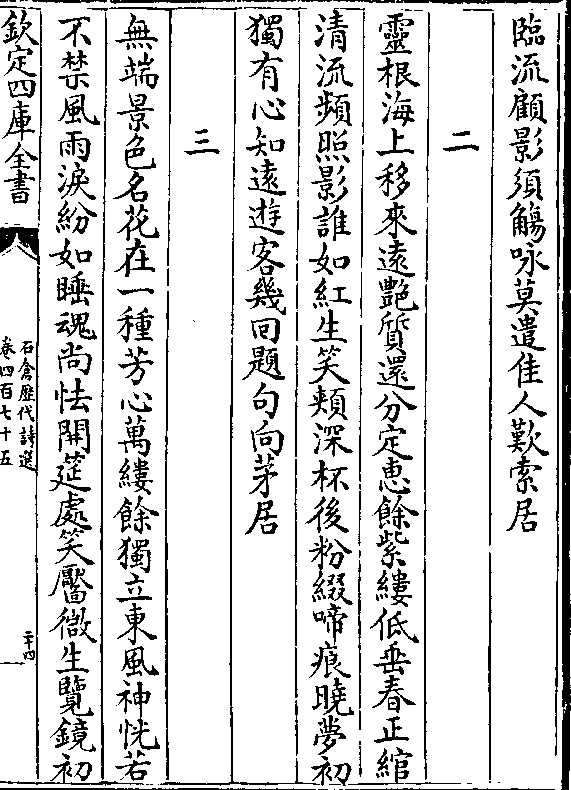 臨流顧影須觴咏莫遣佳人歎索居
二
靈根海上移來遠艷質還分定惠餘紫縷低垂春正綰
清流頻照影誰如紅生笑頰深杯後粉綴啼痕曉夢初
獨有心知遠遊客幾回題句向茅居
三
無端景色名花在一種芳心萬縷餘獨立東風神恍若
不禁風雨淚紛如睡魂尚怯開筵處笑靨微生覽鏡初
欽定四庫全書
石倉歷代詩選
卷四百七十五
二十四